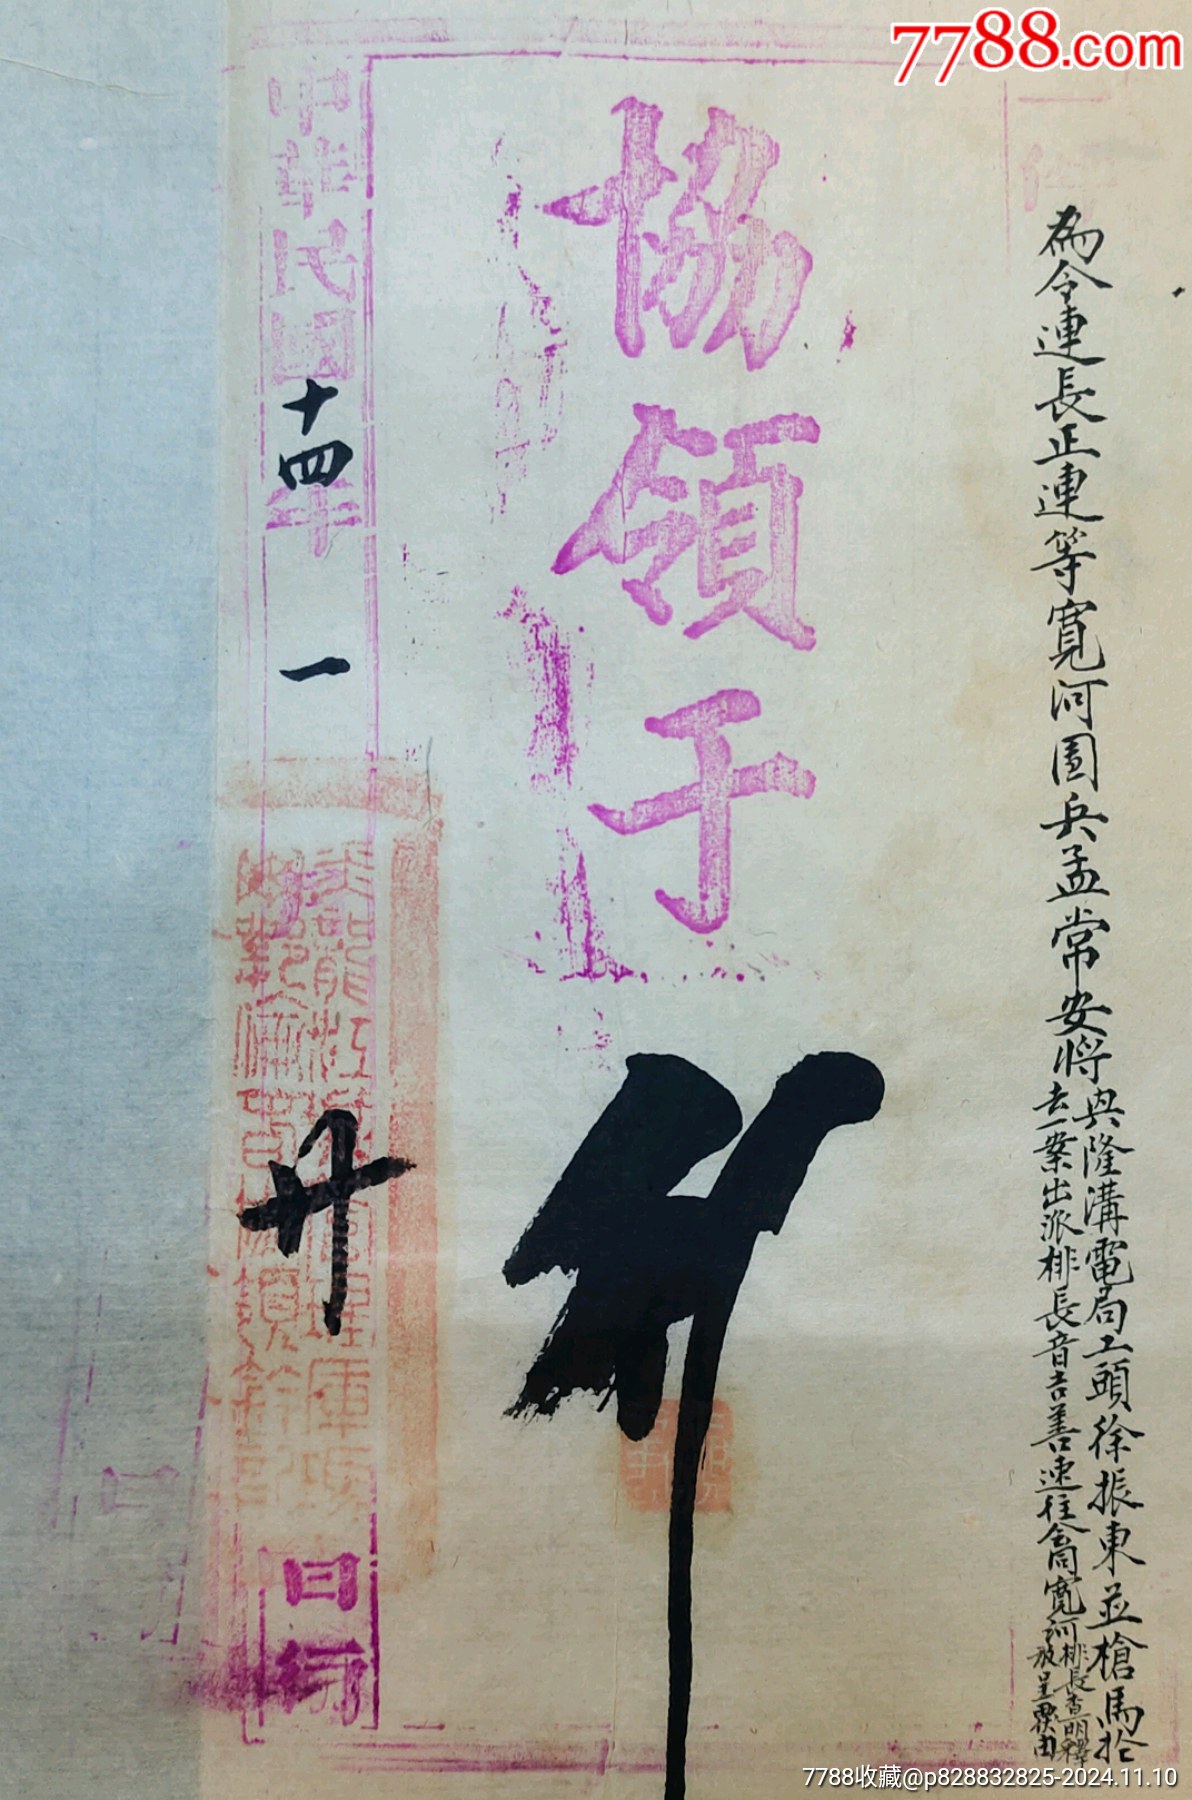 7788.com
為令連長正連等寬河圖兵孟常安將
與隆溝電局工頭徐振東並槍馬拴
去一案出派排長音吉善速往會同寬河
排長查明釋
放呈覆由
協領于
行
中華民國十四年一
廿
日行
7788收藏@p828832825-2024.11.10